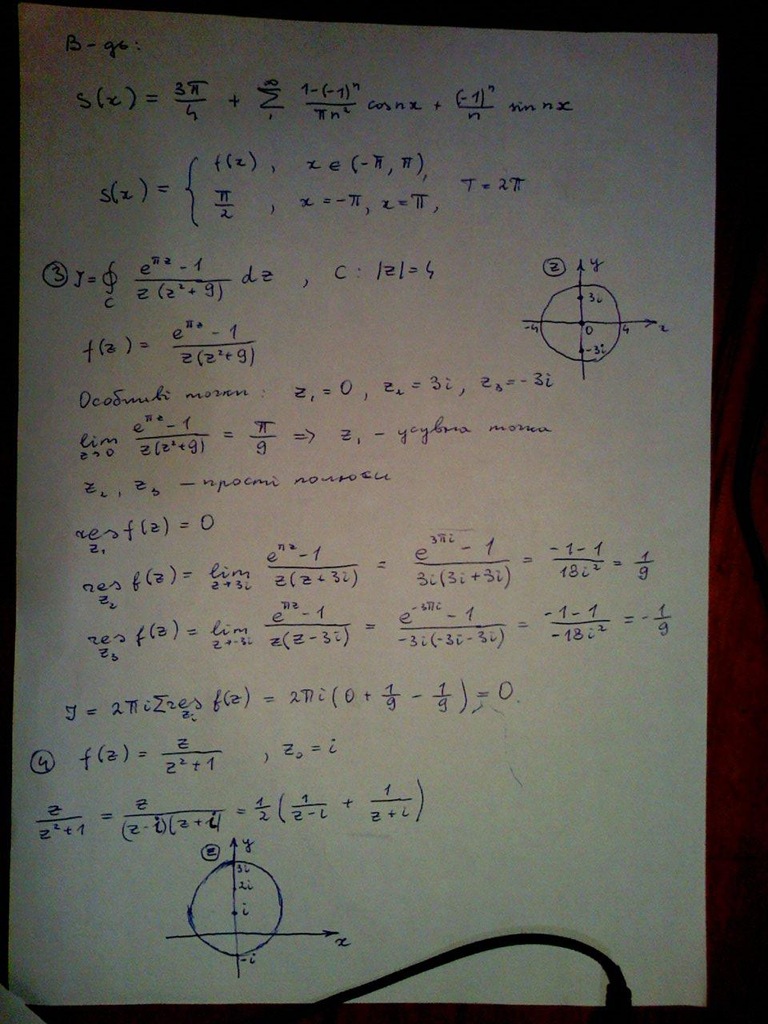 В-дь:
S(x) = 3π/4 + ∑₁^∞ (1-(-1)ⁿ)/(πn²) cos nx + (-1)ⁿ/n sin nx
S(x) = { f(x), x ∈ (-π, π),
π/2, x = -π, x = π, T = 2π
③ J = ∮_C (e^{πz} - 1)/(z(z²+9)) dz, C: |z| = 4
f(z) = (e^{πz} - 1)/(z(z²+9))
Ⓩ y 3i -4 0 4 x -3i
Особливі точки: z₁ = 0, z₂ = 3i, z₃ = -3i
lim_{z→0} (e^{πz} - 1)/(z(z²+9)) = π/9 ⇒ z₁ - усувна точка
z₂, z₃ - прості полюси
res_{z₁} f(z) = 0
res_{z₂} f(z) = lim_{z→3i} (e^{πz} - 1)/(z(z+3i)) = (e^{3πi} - 1)/(3i(3i+3i)) = (-1-1)/(18i²) = 1/9
res_{z₃} f(z) = lim_{z→-3i} (e^{πz} - 1)/(z(z-3i)) = (e^{-3πi} - 1)/(-3i(-3i-3i)) = (-1-1)/(-18i²) = -1/9
J = 2πi Σ res_{zᵢ} f(z) = 2πi (0 + 1/9 - 1/9) = 0.
④ f(z) = z/(z²+1), z₀ = i
z/(z²+1) = z/((z-i)(z+i)) = 1/2 (1/(z-i) + 1/(z+i))
Ⓩ y 3i 2i i x -i